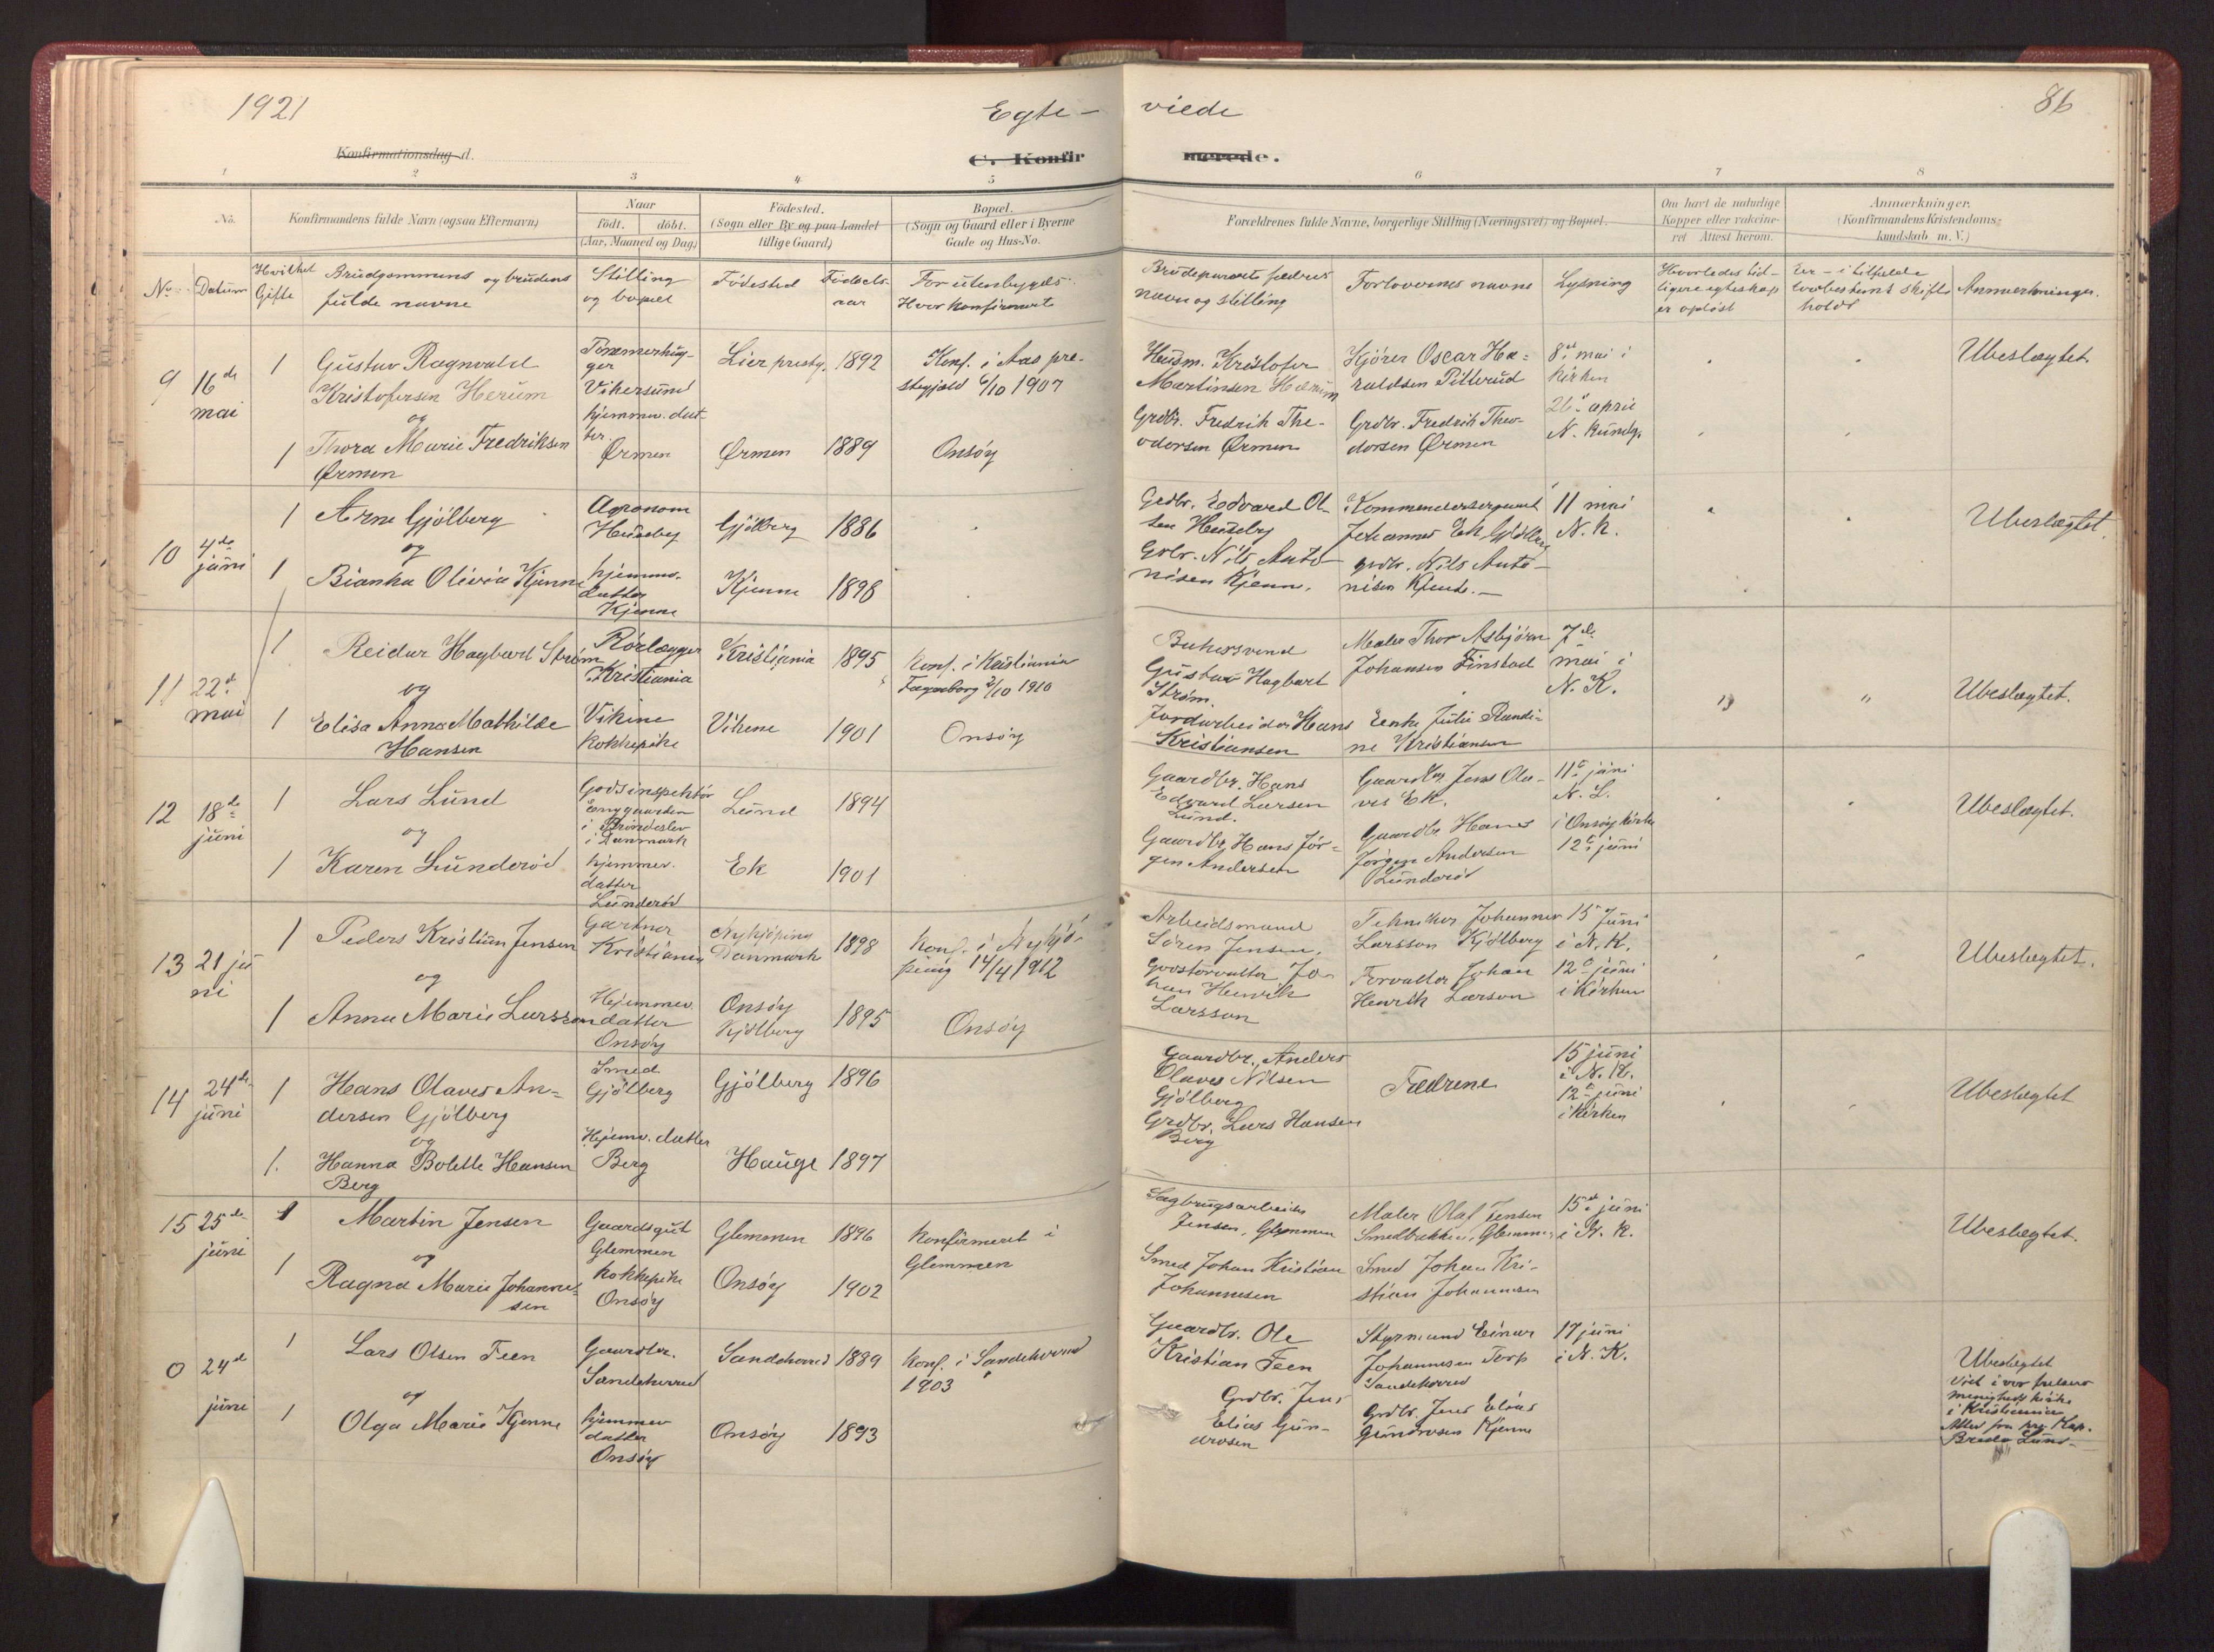 1921
Egte-
viede
86
Konfirmationsdag d.
C. Konfir
merede.
1 2 3 4 5 6 7 8
No. Konfirmandens fulde Navn (ogsaa Efternavn) Naar Födested. Bopæl. Forældrenes fulde Navne, borgerlige Stilling (Næringsvei) og Bopæl. Om havt de naturlige Anmærkninger.
födt. döbt. (Sogn eller By og paa Landet (Sogn og Gaard eller i Byerne Kopper eller vakcine- (Konfirmandens Kristendoms-
(Aar, Maaned og Dag) tillige Gaard) Gade og Hus-No. ret Attest herom. kundskab m. V.)
No. Datum Hvilket Gifte Brudgommens og brudens fulde navne
Stilling og bopæl
Fødested
Fødsels-aar
For utenbygds- Hvor konfirmert
Brudeparrets fædres navn og stilling
Forlovernes navne
Lysning
Hvorledes tid-
ligere egteskap
er opløst
Er - i tilfælde
lovbestemt skifte
holdt
Anmerkninger.
9 16 de mai
1 Gustav Ragnvald
Kristofersen Herum
og
1 Thora Marie Fredriksen
Ørmen
Tømmerhug-
ger
Vikersund
hjemmev. dat-
ter.
Ørmen
Lier prestg. 1892
Ørmen 1889
Konf. i Aas pre-
stegjeld 6/10 1907
Onsøy
Husm. Kristofer
Martinsen Herum
Grdbr. Fredrik The-
odorsen Ørmen
Kjører Oscar Ha-
raldsen Pitterud
Grdbr. Fredrik Theo-
dorsen Ørmen
8de mai i
kirken
26 april
N. kundg.
Ubeslægtet
10 4de juni
1 Arne Gjølberg
og
1 Bianka Olivia Kjenne
Agronom
Huseby
hjemmev.
datter
Kjenne
Gjølberg 1886
Kjenne 1898
Grdbr. Edvard Ol-
sen Huseby
Grbr. Nils Anto-
nisen Kjenne.
Kommandersergeant
Johannes Ek, Gjølberg
grdbr. Nils Anto-
nisen Kjenne.
11 mai
N. K.
Ubeslægtet.
11 22d mai
1 Reidar Hagbart Strøm
og
1 Elisa Anna Mathilde
Hansen
Rørlægger
Kristiania
Vikene
kokkepike
Kristiania 1895
Vikene 1901
Konf. i Kristiania
Fagerborg 2/10 1910
Onsøy
Bakersvend
Gustav Hagbart
Strøm.
Jordarbeider Hans
Kristiansen
Maler Thor Asbjørn
Johansen Finstad
Enke Julie Randi-
ne Kristiansen
7de
mai i
N. K.
Ubeslægtet.
12 18de juni
1 Lars Lund
og
1 Karen Lunderød
Godsinspektør
Enggaarden
i Brønderslev
i Danmark
hjemmev.
datter
Lunderød
Lund 1894
Ek 1901
Gaardbr. Hans
Edvard Larsen
Lund.
Gaardbr. Hans Jør-
gen Andersen
Gaardbr. Jens Ola-
ves Ek.
Gaardbr. Hans
Jørgen Andersen
Lunderød
11te juni
N. L.
i Onsøy kirke
12te juni
Ubeslægtet.
13 21 juni
1 Peders Kristian Jensen
og
1 Anna Marie Larsson
Gartner
Kristiania
Hjemmev.
datter
Onsøy
Nykjøping
Danmark 1898
Onsøy
Kjølberg 1895
Konf. i Nykjø-
ping 14/4 1912
Onsøy
Arbeidsmand
Søren Jensen.
Godsforvalter Jo-
han Henrik
Larsson
Tekniker Johannes
Larsson Kjølberg
Forvalter Johan
Henrik Larson
15 Juni
i N. K.
12te juni
i kirken
Ubeslægtet.
14 24de juni
1 Hans Olaves An-
dersen Gjølberg
og
1. Hanna Bolette Hansen
Berg
Smed
Gjølberg
Hjemv. datter
Berg
Gjølberg 1896
Hauge 1897
Gaardbr. Anders
Olaves Nilsen
Gjølberg
Grdbr. Lars Hansen
Berg
Fædrene
15 juni
i N. K.
12te juni
i kirken
Ubeslægtet
15 25de juni
1 Martin Jensen
og
1 Ragna Marie Johanne-
sen
Gaardsgut
Glemmen
kokkepike
Onsøy
Glemmen 1896
Onsøy 1902
Konfirmert i
Glemmen
Sagbrugsarbeider
Jensen, Glemmen
Smed Johan Kristian
Johannesen
Maler Olaf Jensen
Smedbakken, Glemmen
Smed Johan Kri-
stian Johannesen
15de juni
i N. K.
Ubeslægtet.
0 24d juni
1 Lars Olsen Feen
og
1 Olga Marie Kjenne
Gaardbr.
Sandeherred
hjemmev
datter
Onsøy
Sandeherred 1889
Onsøy 1893
Konf. i Sandeherred
1903
Gaardbr. Ole
Kristian Feen
Grdbr. Jens
Elias Gun-
drosen
Styrmand Einar
Johannesen Torp
Sandeherred
Grdbr. Jens Elias
Gundrosen Kjenne
17 juni
i N. K.
Ubeslegtet
Viet i vor frelsers
menighets kirke
i Kristiania
Attest fra Kap.
Lund